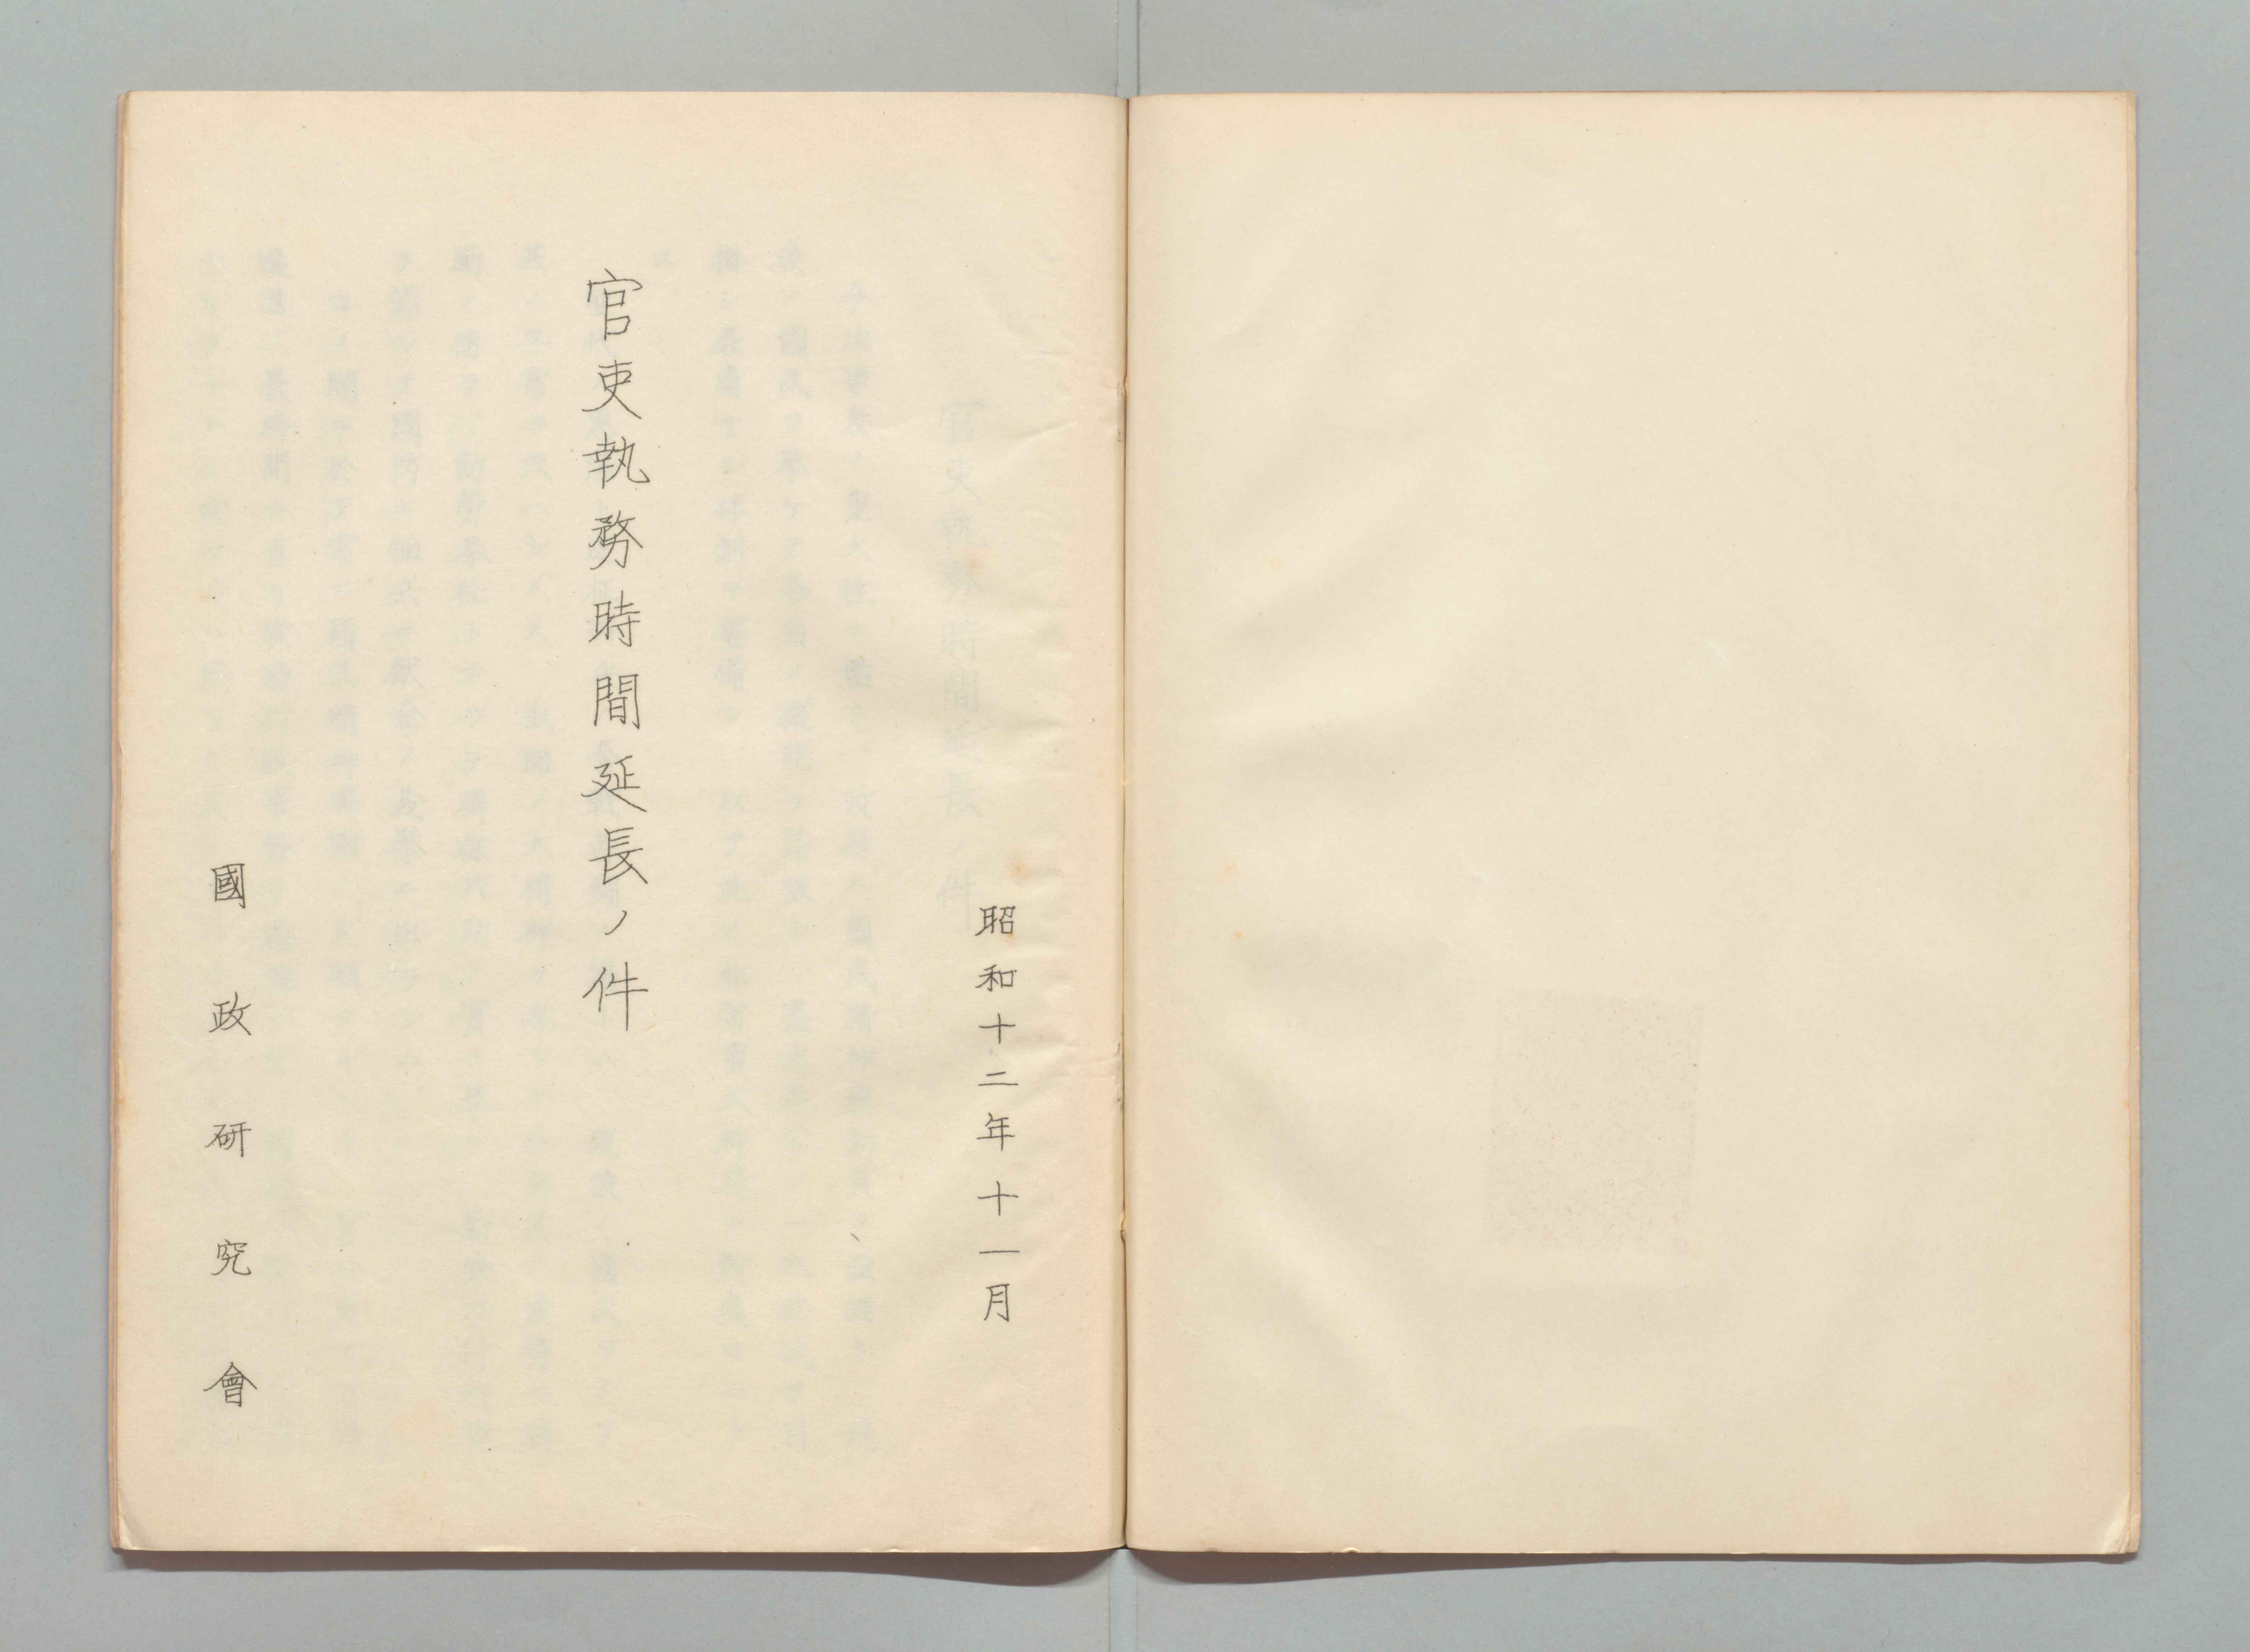 昭和十二年十一月
官吏執務時間延長ノ件
國政研究會